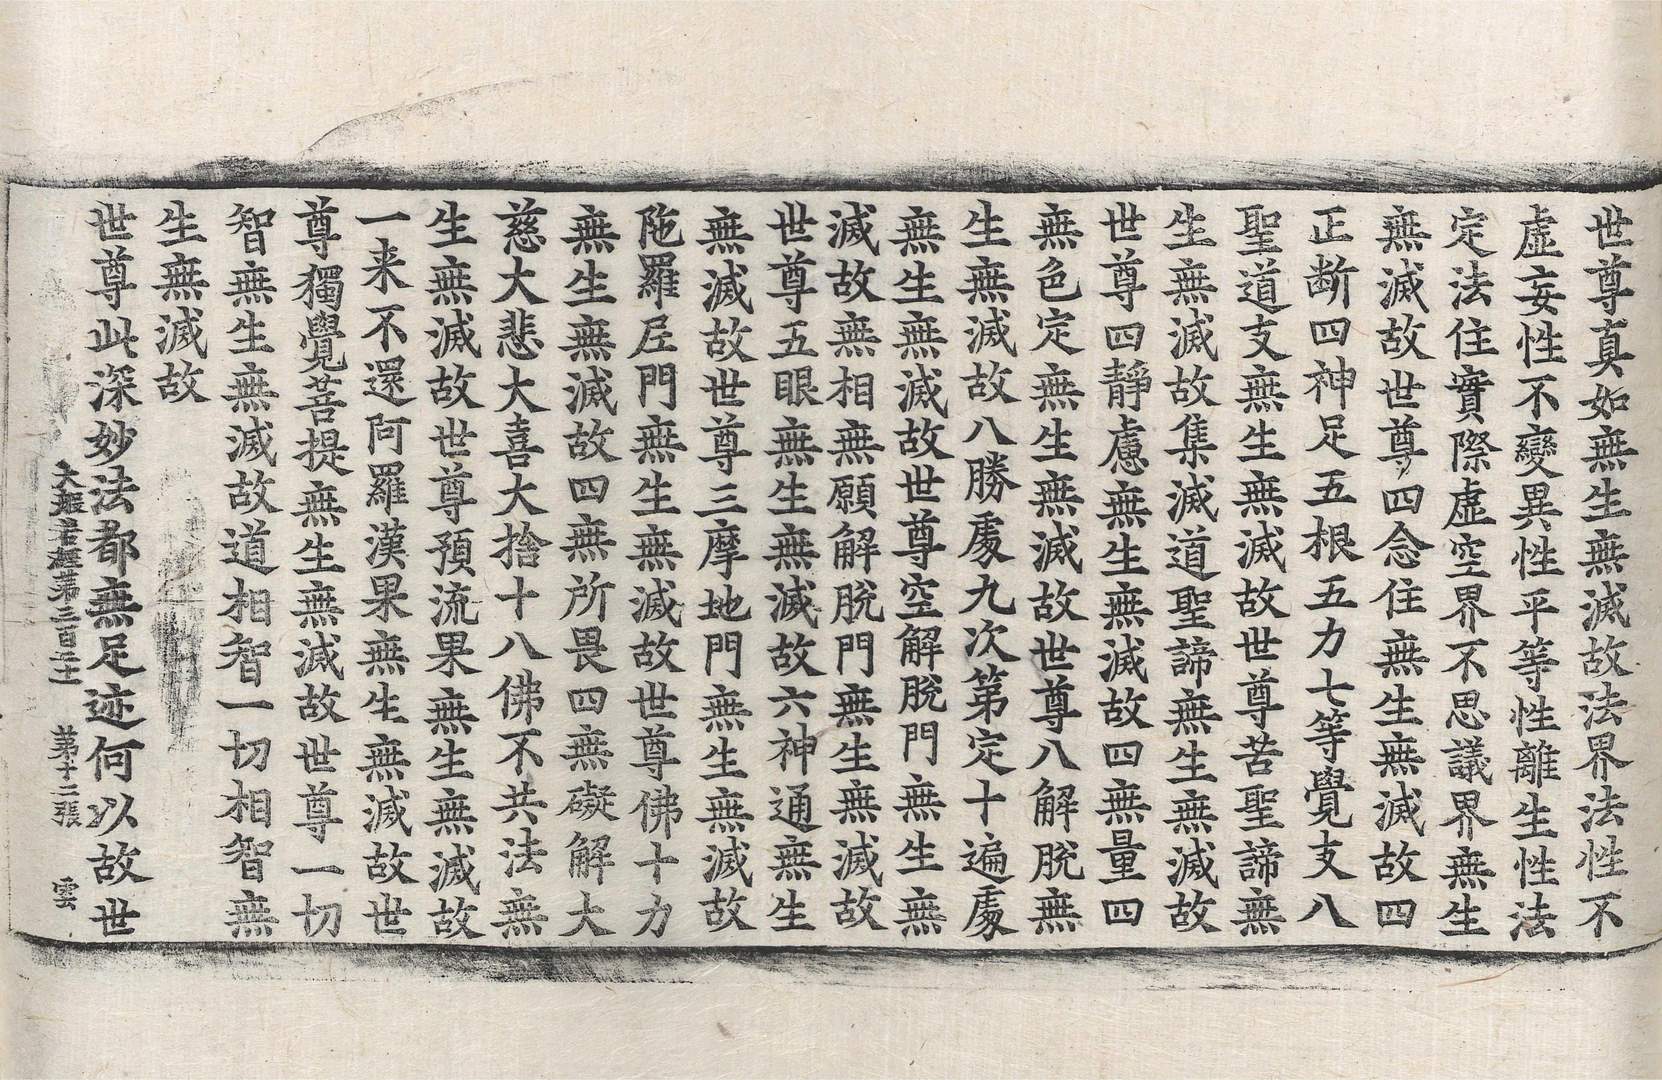 世尊真如無生無滅故法界法性不
虛妄性不變異性平等性離生性法
定法住實際虛空界不思議界無生
無滅故世尊四念住無生無滅故四
正斷四神足五根五力七等覺支八
聖道支無生無滅故世尊苦聖諦無
生無滅故集滅道聖諦無生無滅故
世尊四靜慮無生無滅故四無量四
無色定無生無滅故世尊八解脫無
生無滅故八勝處九次第定十遍處
無生無滅故世尊空解脫門無生無
滅故無相無願解脫門無生無滅故
世尊五眼無生無滅故六神通無生
無滅故世尊三摩地門無生無滅故
陁羅尼門無生無滅故世尊佛十力
無生無滅故四無所畏四無礙解大
慈大悲大喜大捨十八佛不共法無
生無滅故世尊預流果無生無滅故
一来不還阿羅漢果無生無滅故世
尊獨覺菩提無生無滅故世尊一切
智無生無滅故道相智一切相智無
生無滅故
世尊此深妙法都無足迹何以故世
大般若經第三百二十一 第十二張 雲